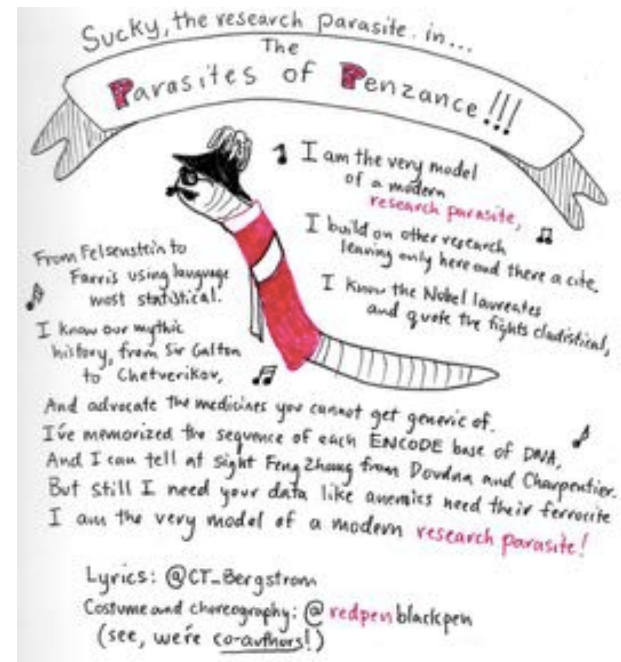 Sucky, the research parasite in...
The
Parasites of Penzance!!!
I am the very model
of a modern
research parasite,
I build on other research
leaving only here and there a cite.
I know the Nobel laureates
and quote the fights cladistical,
From Felsenstein to
Farris using language
most statistical.
I know our mythic
history, from Sir Galton
to Chetverikov,
And advocate the medicines you cannot get generic of.
I've memorized the sequence of each ENCODE base of DNA,
And I can tell at sight Feng Zhang from Doudna and Charpentier.
But still I need your data like anemics need their ferrocite
I am the very model of a modern research parasite!
Lyrics: @CT_Bergstrom
Costume and choreography: @redpenblackpen
(see, we're co-authors!)